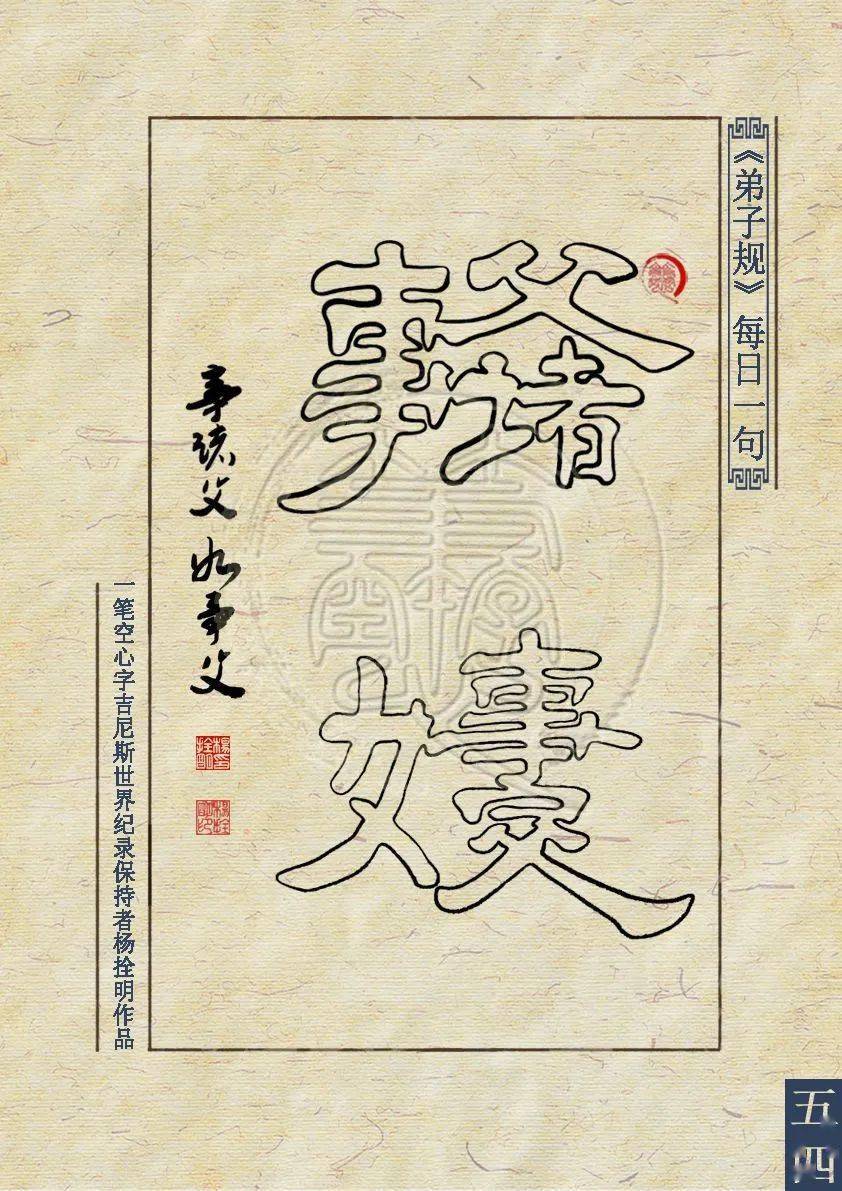 《弟子规》每日一句
事诸父
如事父
事诸父如事父
一笔空心字吉尼斯世界纪录保持者杨拴明作品
五四